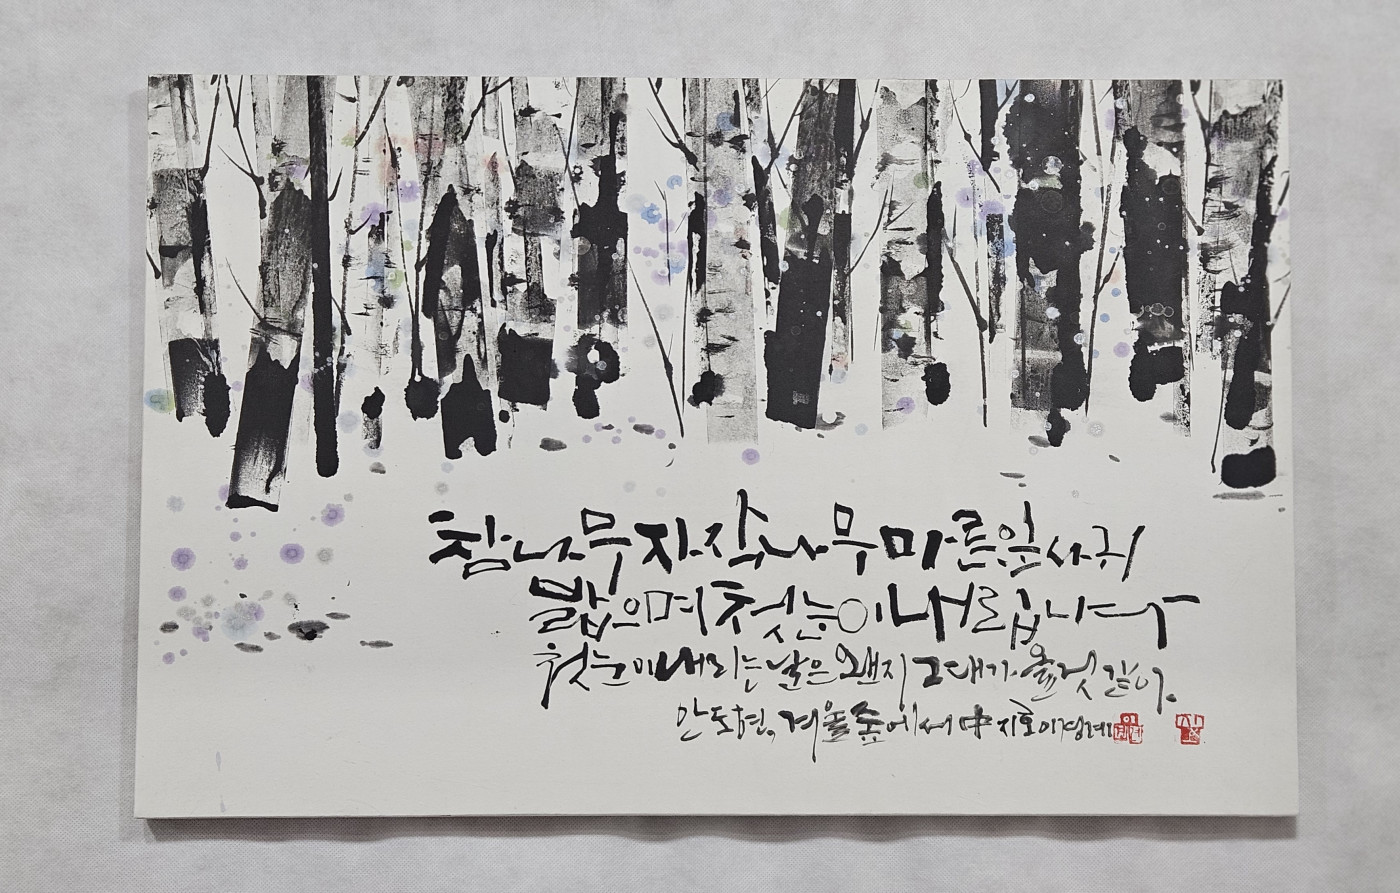 참나무 자작나무 마른잎사귀
밟으며 첫눈이 내립니다
첫눈이 내리는 날은 왠지 그대가 올 것 같아
안도현, 겨울숲에서 中 지호 이경례